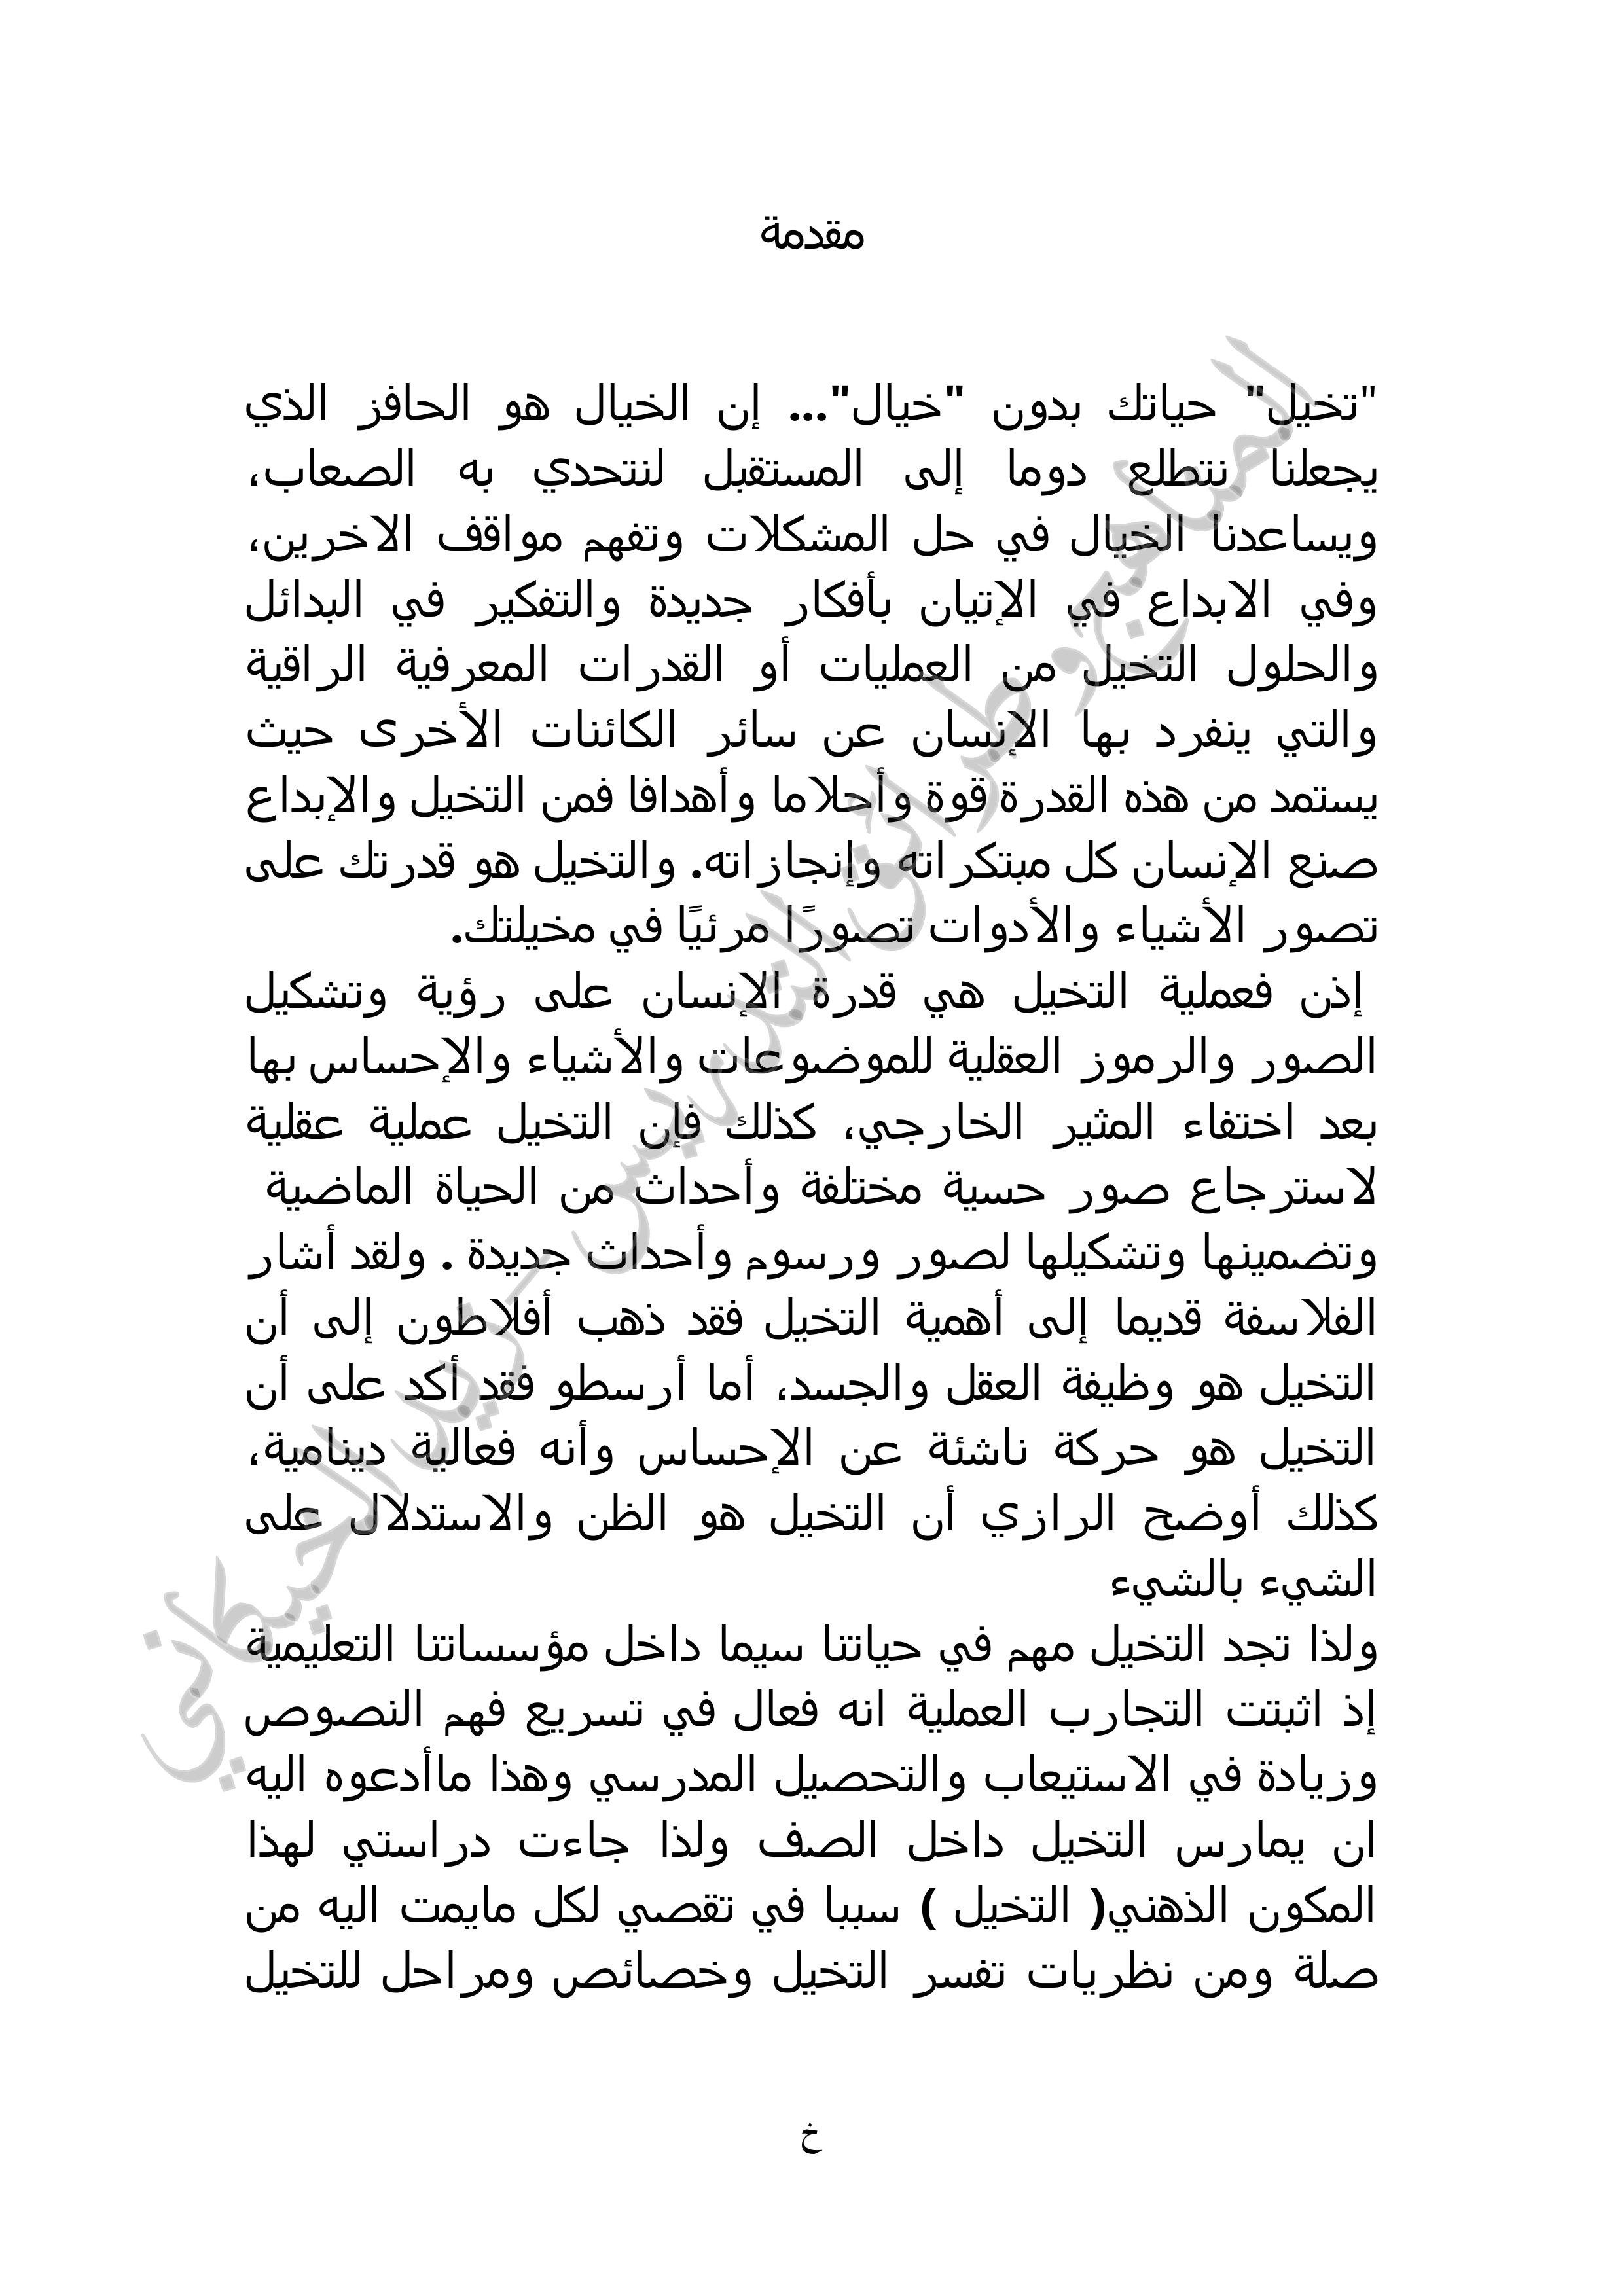 مقدمة
"تخيل" حياتك بدون "خيال"... إن الخيال هو الحافز الذي
يجعلنا نتطلع دوما إلى المستقبل لنتحدي به الصعاب،
ويساعدنا الخيال في حل المشكلات وتفهم مواقف الاخرين،
وفي الابداع في الإتيان بأفكار جديدة والتفكير في البدائل
والحلول التخيل من العمليات أو القدرات المعرفية الراقية
والتي ينفرد بها الإنسان عن سائر الكائنات الأخرى حيث
يستمد من هذه القدرة قوة وأحلاما وأهدافا فمن التخيل والإبداع
صنع الإنسان كل مبتكراته وإنجازاته. والتخيل هو قدرتك على
تصور الأشياء والأدوات تصورًا مرئيًا في مخيلتك.
إذن فعملية التخيل هي قدرة الإنسان على رؤية وتشكيل
الصور والرموز العقلية للموضوعات والأشياء والإحساس بها
بعد اختفاء المثير الخارجي، كذلك فإن التخيل عملية عقلية
لاسترجاع صور حسية مختلفة وأحداث من الحياة الماضية
وتضمينها وتشكيلها لصور ورسوم وأحداث جديدة . ولقد أشار
الفلاسفة قديما إلى أهمية التخيل فقد ذهب أفلاطون إلى أن
التخيل هو وظيفة العقل والجسد، أما أرسطو فقد أكد على أن
التخيل هو حركة ناشئة عن الإحساس وأنه فعالية دينامية،
كذلك أوضح الرازي أن التخيل هو الظن والاستدلال على
الشيء بالشيء
ولذا تجد التخيل مهم في حياتنا سيما داخل مؤسساتنا التعليمية
إذ اثبتت التجارب العملية انه فعال في تسريع فهم النصوص
وزيادة في الاستيعاب والتحصيل المدرسي وهذا ماأدعوه اليه
ان يمارس التخيل داخل الصف ولذا جاءت دراستي لهذا
المكون الذهني( التخيل ) سببا في تقصي لكل مايمت اليه من
صلة ومن نظريات تفسر التخيل وخصائص ومراحل للتخيل
خ
المناهج وطرائق التدريس - زيد الخيكاني